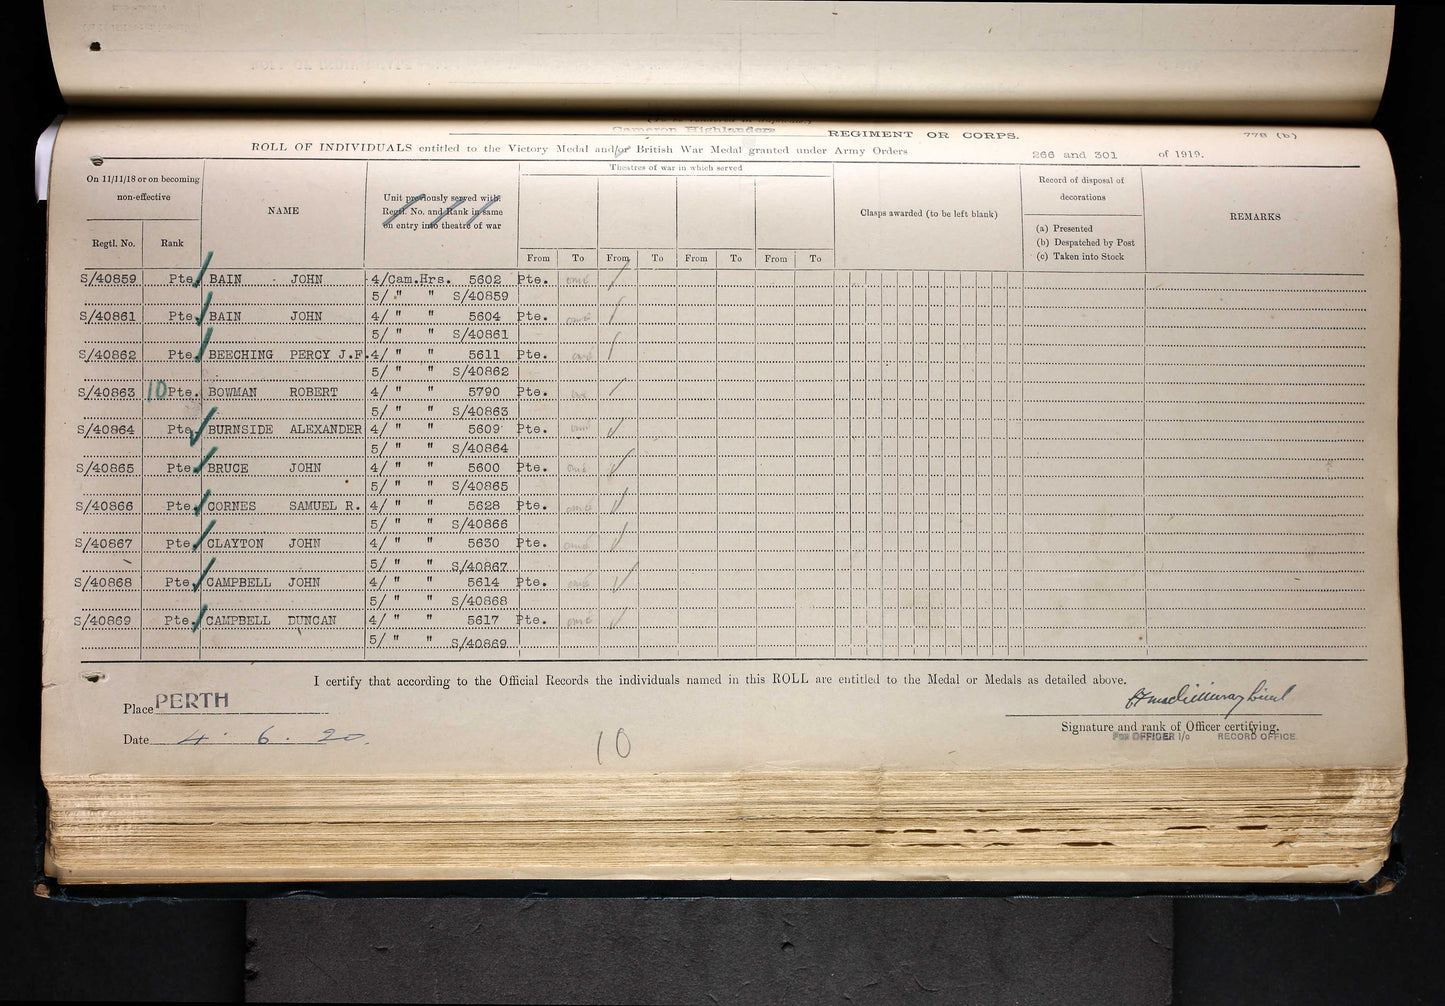 Cameron Highlanders REGIMENT OR CORPS. 778 (b)
ROLL OF INDIVIDUALS entitled to the Victory Medal and/or British War Medal granted under Army Orders 266 and 301 of 1919.
On 11/11/18 or on becoming non-effective
Regtl. No. Rank
NAME
Unit previously served with.
Regtl. No. and Rank in same
on entry into theatre of war
Theatres of war in which served
From To From To From To From To
Clasps awarded (to be left blank)
Record of disposal of
decorations
(a) Presented
(b) Despatched by Post
(c) Taken into Stock
REMARKS
S/40859 Pte. BAIN JOHN 4/Cam.Hrs. 5602 Pte.
5/ " " S/40859
S/40861 Pte. BAIN JOHN 4/ " " 5604 Pte.
5/ " " S/40861
S/40862 Pte. BEECHING PERCY J.F. 4/ " " 5611 Pte.
5/ " " S/40862
S/40863 10 Pte. BOWMAN ROBERT 4/ " " 5790 Pte.
5/ " " S/40863
S/40864 Pte. BURNSIDE ALEXANDER 4/ " " 5609 Pte.
5/ " " S/40864
S/40865 Pte. BRUCE JOHN 4/ " " 5600 Pte.
5/ " " S/40865
S/40866 Pte. CORNES SAMUEL R. 4/ " " 5628 Pte.
5/ " " S/40866
S/40867 Pte. CLAYTON JOHN 4/ " " 5630 Pte.
5/ " " S/40867
S/40868 Pte. CAMPBELL JOHN 4/ " " 5614 Pte.
5/ " " S/40868
S/40869 Pte. CAMPBELL DUNCAN 4/ " " 5617 Pte.
5/ " " S/40869
I certify that according to the Official Records the individuals named in this ROLL are entitled to the Medal or Medals as detailed above.
Place PERTH
Signature and rank of Officer certifying.
FOR OFFICER I/c RECORD OFFICE.
Date 4. 6. 20.
10